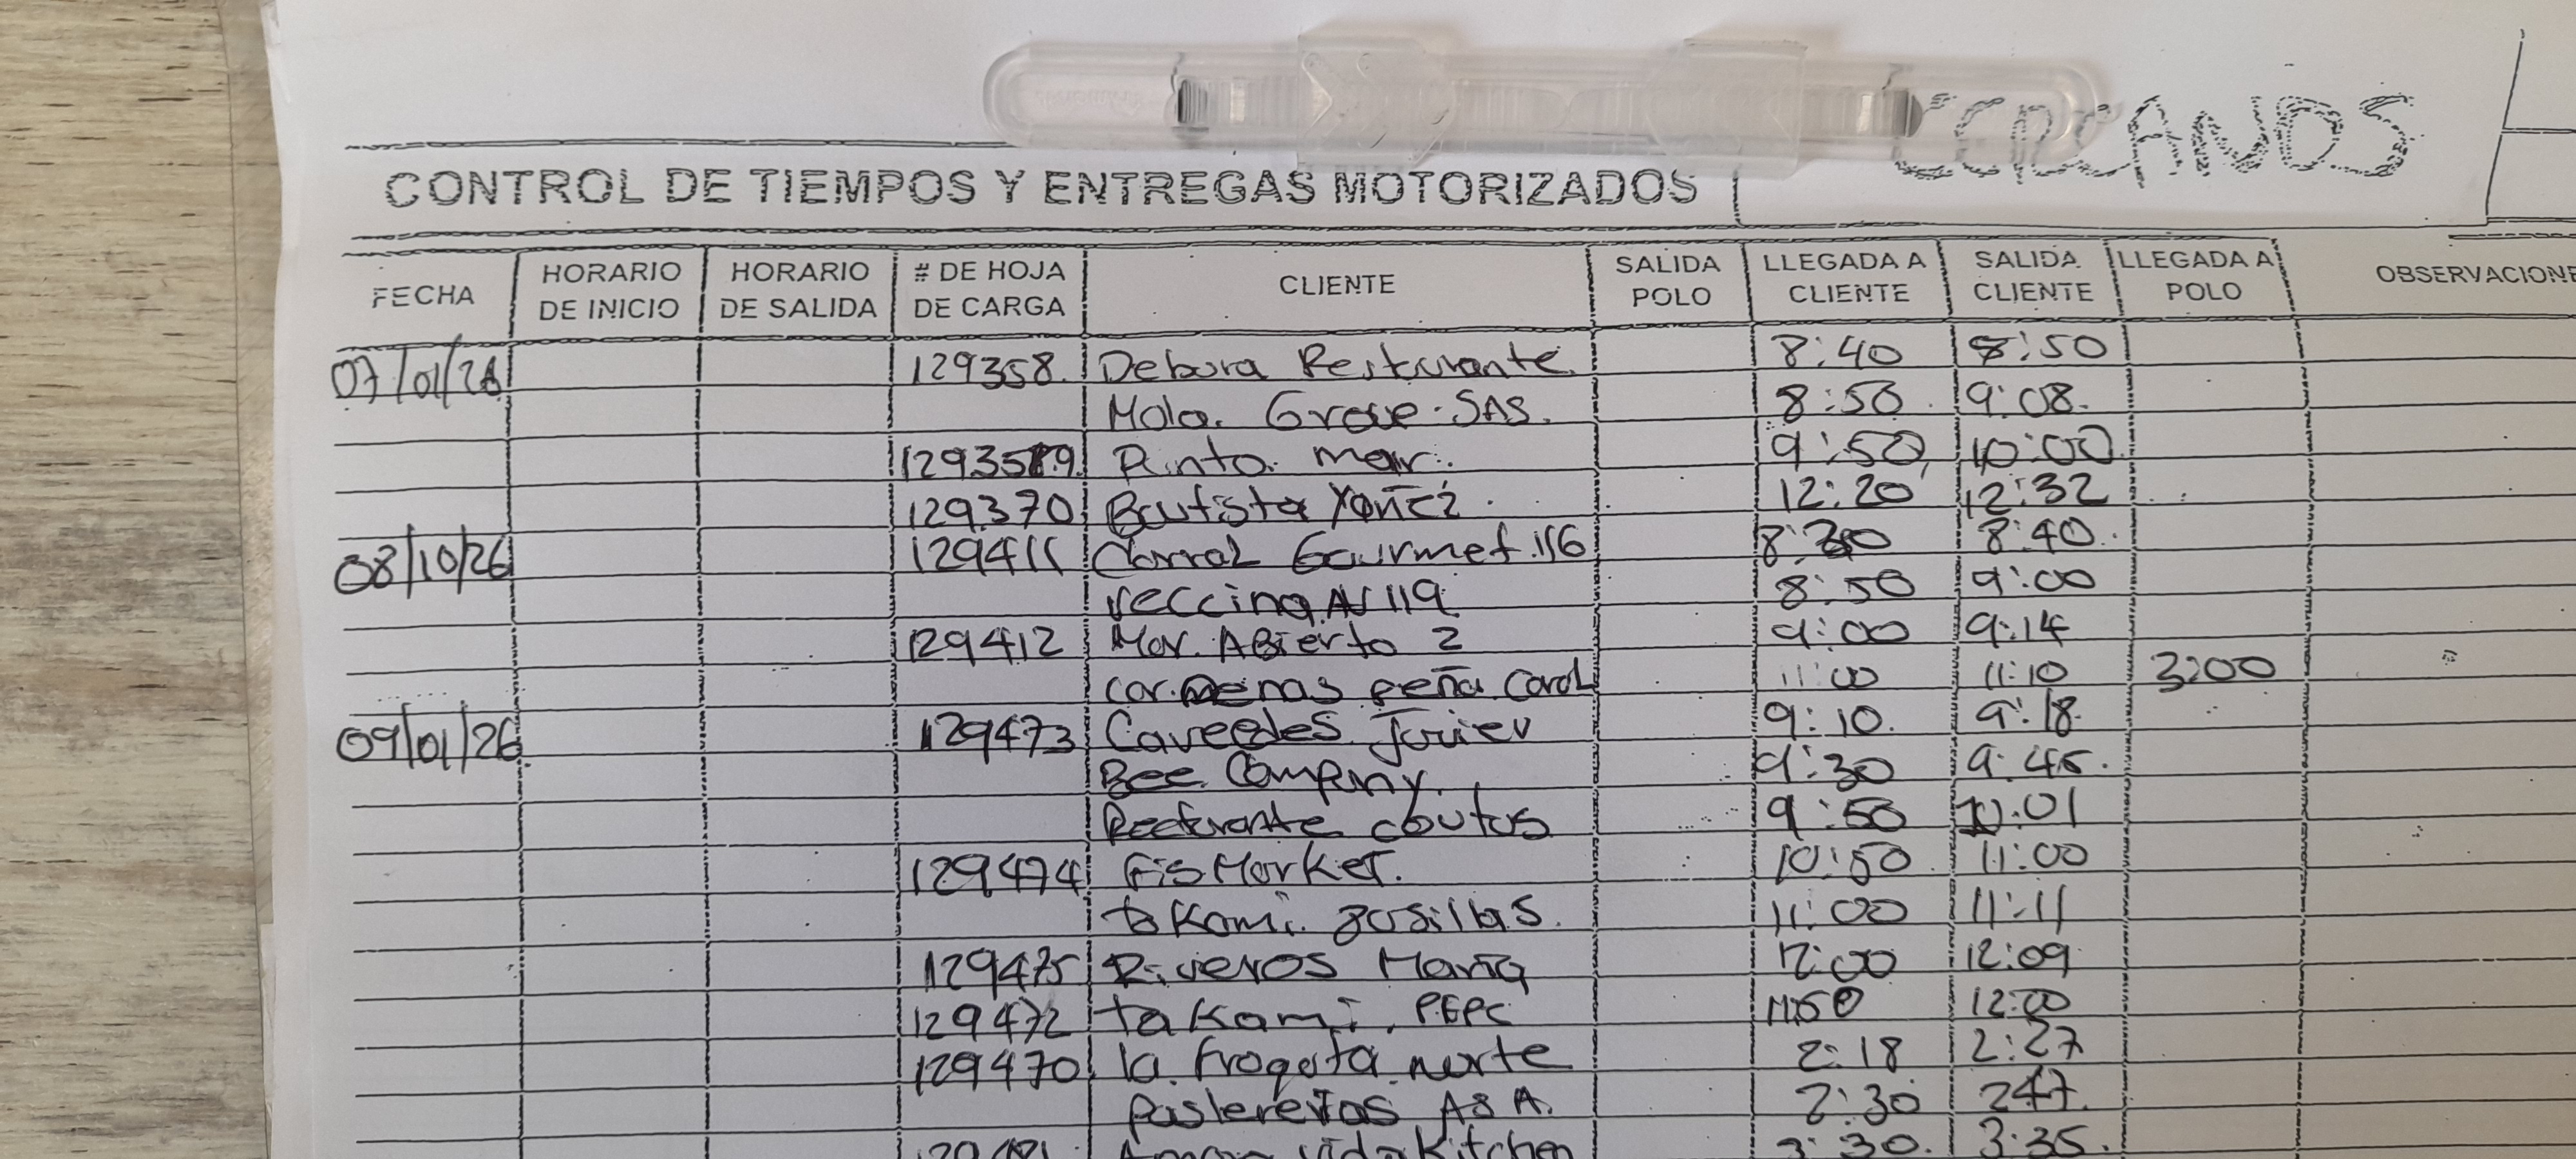 CERCANOS
CONTROL DE TIEMPOS Y ENTREGAS MOTORIZADOS
FECHA HORARIO DE INICIO HORARIO DE SALIDA # DE HOJA DE CARGA CLIENTE SALIDA POLO LLEGADA A CLIENTE SALIDA CLIENTE LLEGADA A POLO OBSERVACIONE
07/01/26 129358. Debora Resturante 8:40 8:50
Mola. Grove. SAS. 8:50 9:08.
Punto. mar. 9:50 10:00
129370 Bautista Yañez. 12:20 12:32
08/10/26 129411 Corral Gourmet 116 8:30 8:40.
veccina AV 119 8:50 9:00
129412 Mar. Abierto 2 9:00 9:14
peña Carol 11:00 11:10 3:00
09/01/26 129473 Javier 9:10. 9:18
Bee Company. 9:30 9:45.
9:50 10:01
129474 Fis Market. 10:50 11:00
takami. 11:00 11:11
129475 Riveros Maria 12:00 12:09
129472 takami. PEPC 11:50 12:00
129470 la fragata norte 2:18 2:27
A&A. 2:30 247.
vida Kitchen 3:30. 3:35.